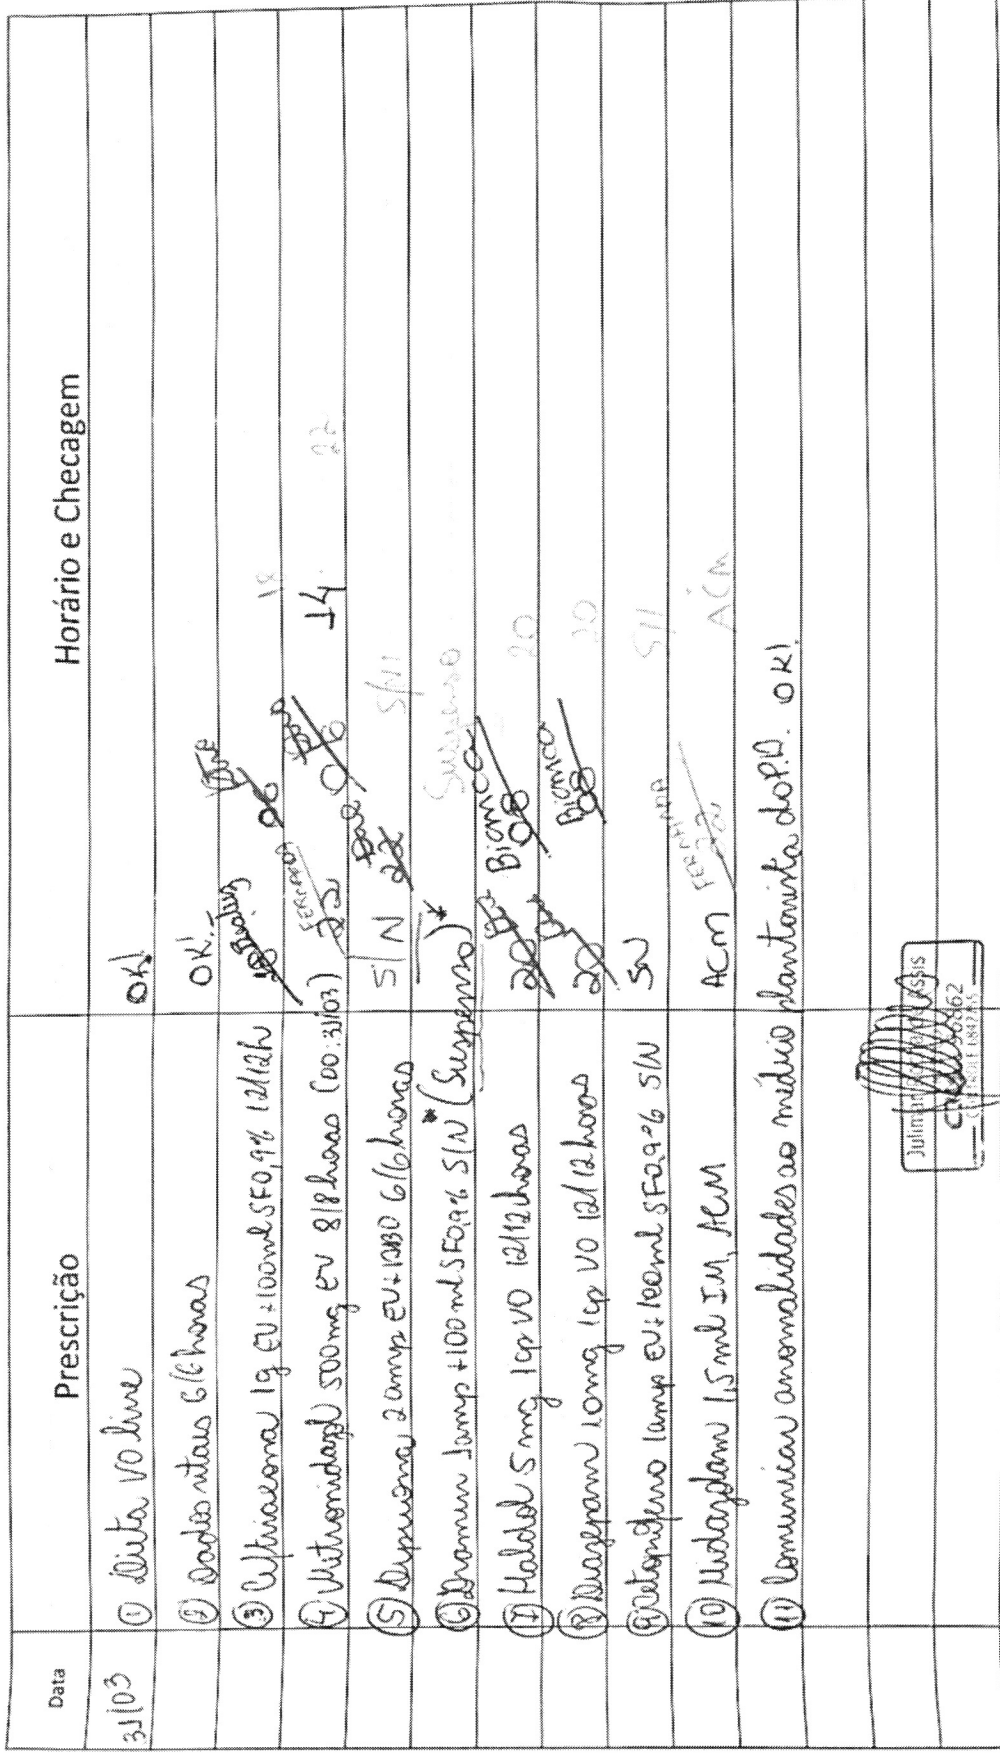 Data Prescrição Horário e Checagem
31/03 ① Dieta VO livre OK!
② Dados vitais 6/6 horas OK!
③ Ceftriaxona 1g EV + 100ml SF0,9% 12/12h 18 06 18
④ Metronidazol 500mg EV 8/8 horas (D0: 31/03) 22 FERNANDA 06 14 22
⑤ Dipirona 2 amp EV + ABD 6/6 horas S/N 22 S/N
⑥ Dramin 1amp + 100ml SF0,9% S/N * (Suspenso) Suspenso
⑦ Haldol 5mg 1cp VO 12/12 horas 20 Bianca 08 20
⑧ Diazepam 10mg 1cp VO 12/12 horas 20 Bianca 08 20
⑨ Cetoprofeno 1amp EV + 100ml SF0,9% S/N SN S/N
⑩ Midazolam 1,5ml IM, ACM ACM FERNANDA 22 ACM
⑪ Comunicar anormalidades ao médico plantonista do P.A. OK!